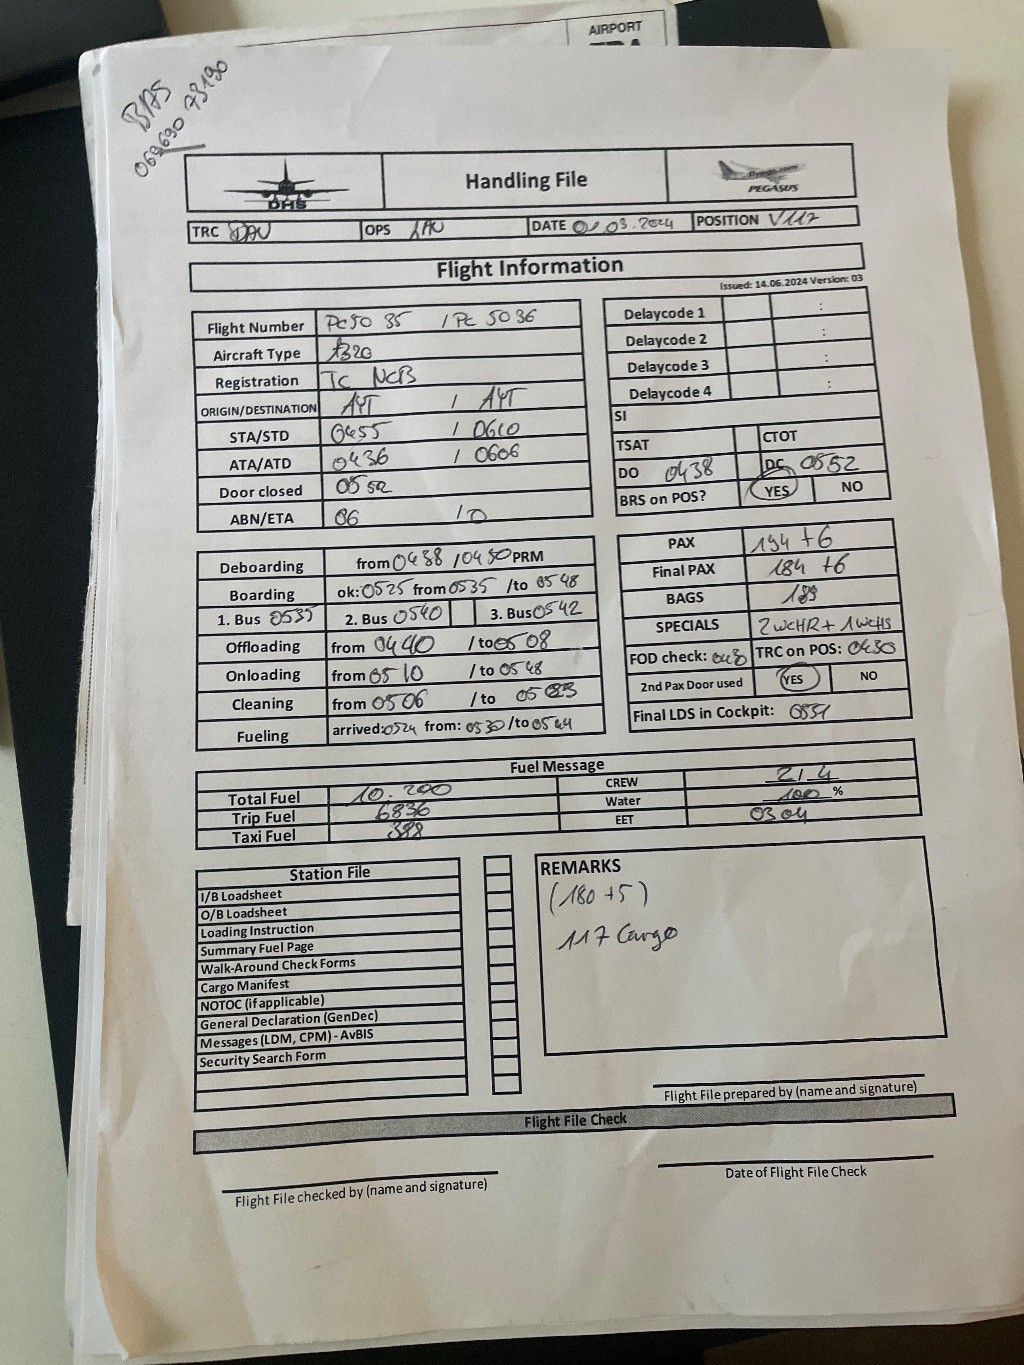 AIRPORT
BAS
069690 73190
DHS
Handling File
flypgs.com
PEGASUS
TRC DAU OPS LAU DATE 01.03.2024 POSITION V117
Flight Information
Issued: 14.06.2024 Version: 03
Flight Number PC5035 / PC 5036
Aircraft Type A320
Registration TC NCB
ORIGIN/DESTINATION AYT / AYT
STA/STD 0455 / 0610
ATA/ATD 0436 / 0606
Door closed 0552
ABN/ETA 06 / 0
Delaycode 1 :
Delaycode 2 :
Delaycode 3 :
Delaycode 4 :
SI
TSAT CTOT
DO 0438 DC 0552
BRS on POS? YES NO
Deboarding from 0438 / 0450 PRM
Boarding ok: 0525 from 0535 / to 0548
1. Bus 0535 2. Bus 0540 3. Bus 0542
Offloading from 0440 / to 0508
Onloading from 0510 / to 0548
Cleaning from 0506 / to 0523
Fueling arrived: 0524 from: 0530 / to 0544
PAX 194 +6
Final PAX 184 +6
BAGS 189
SPECIALS 2 WCHR + 1 WCHS
FOD check: 0430 TRC on POS: 0430
2nd Pax Door used YES NO
Final LDS in Cockpit: 0551
Fuel Message
Total Fuel 10.200 CREW 2/4
Trip Fuel 6836 Water 100 %
Taxi Fuel EET 0304
Station File
I/B Loadsheet
O/B Loadsheet
Loading Instruction
Summary Fuel Page
Walk-Around Check Forms
Cargo Manifest
NOTOC (if applicable)
General Declaration (GenDec)
Messages (LDM, CPM) - AvBIS
Security Search Form
REMARKS
(180 +5)
117 Cargo
Flight File prepared by (name and signature)
Flight File Check
Flight File checked by (name and signature)
Date of Flight File Check